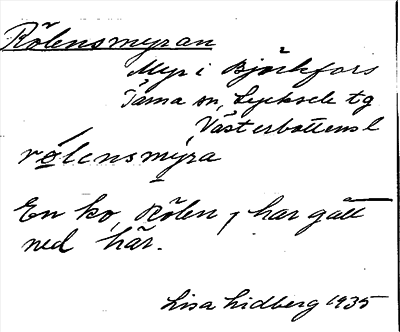 Rölensmyran
Myr i Björkfors
Tärna sn, Lycksele tg
Västerbottens l
rölensmýra
En ko, Rölen, har gått
ned här.
Lisa Lidberg 1935